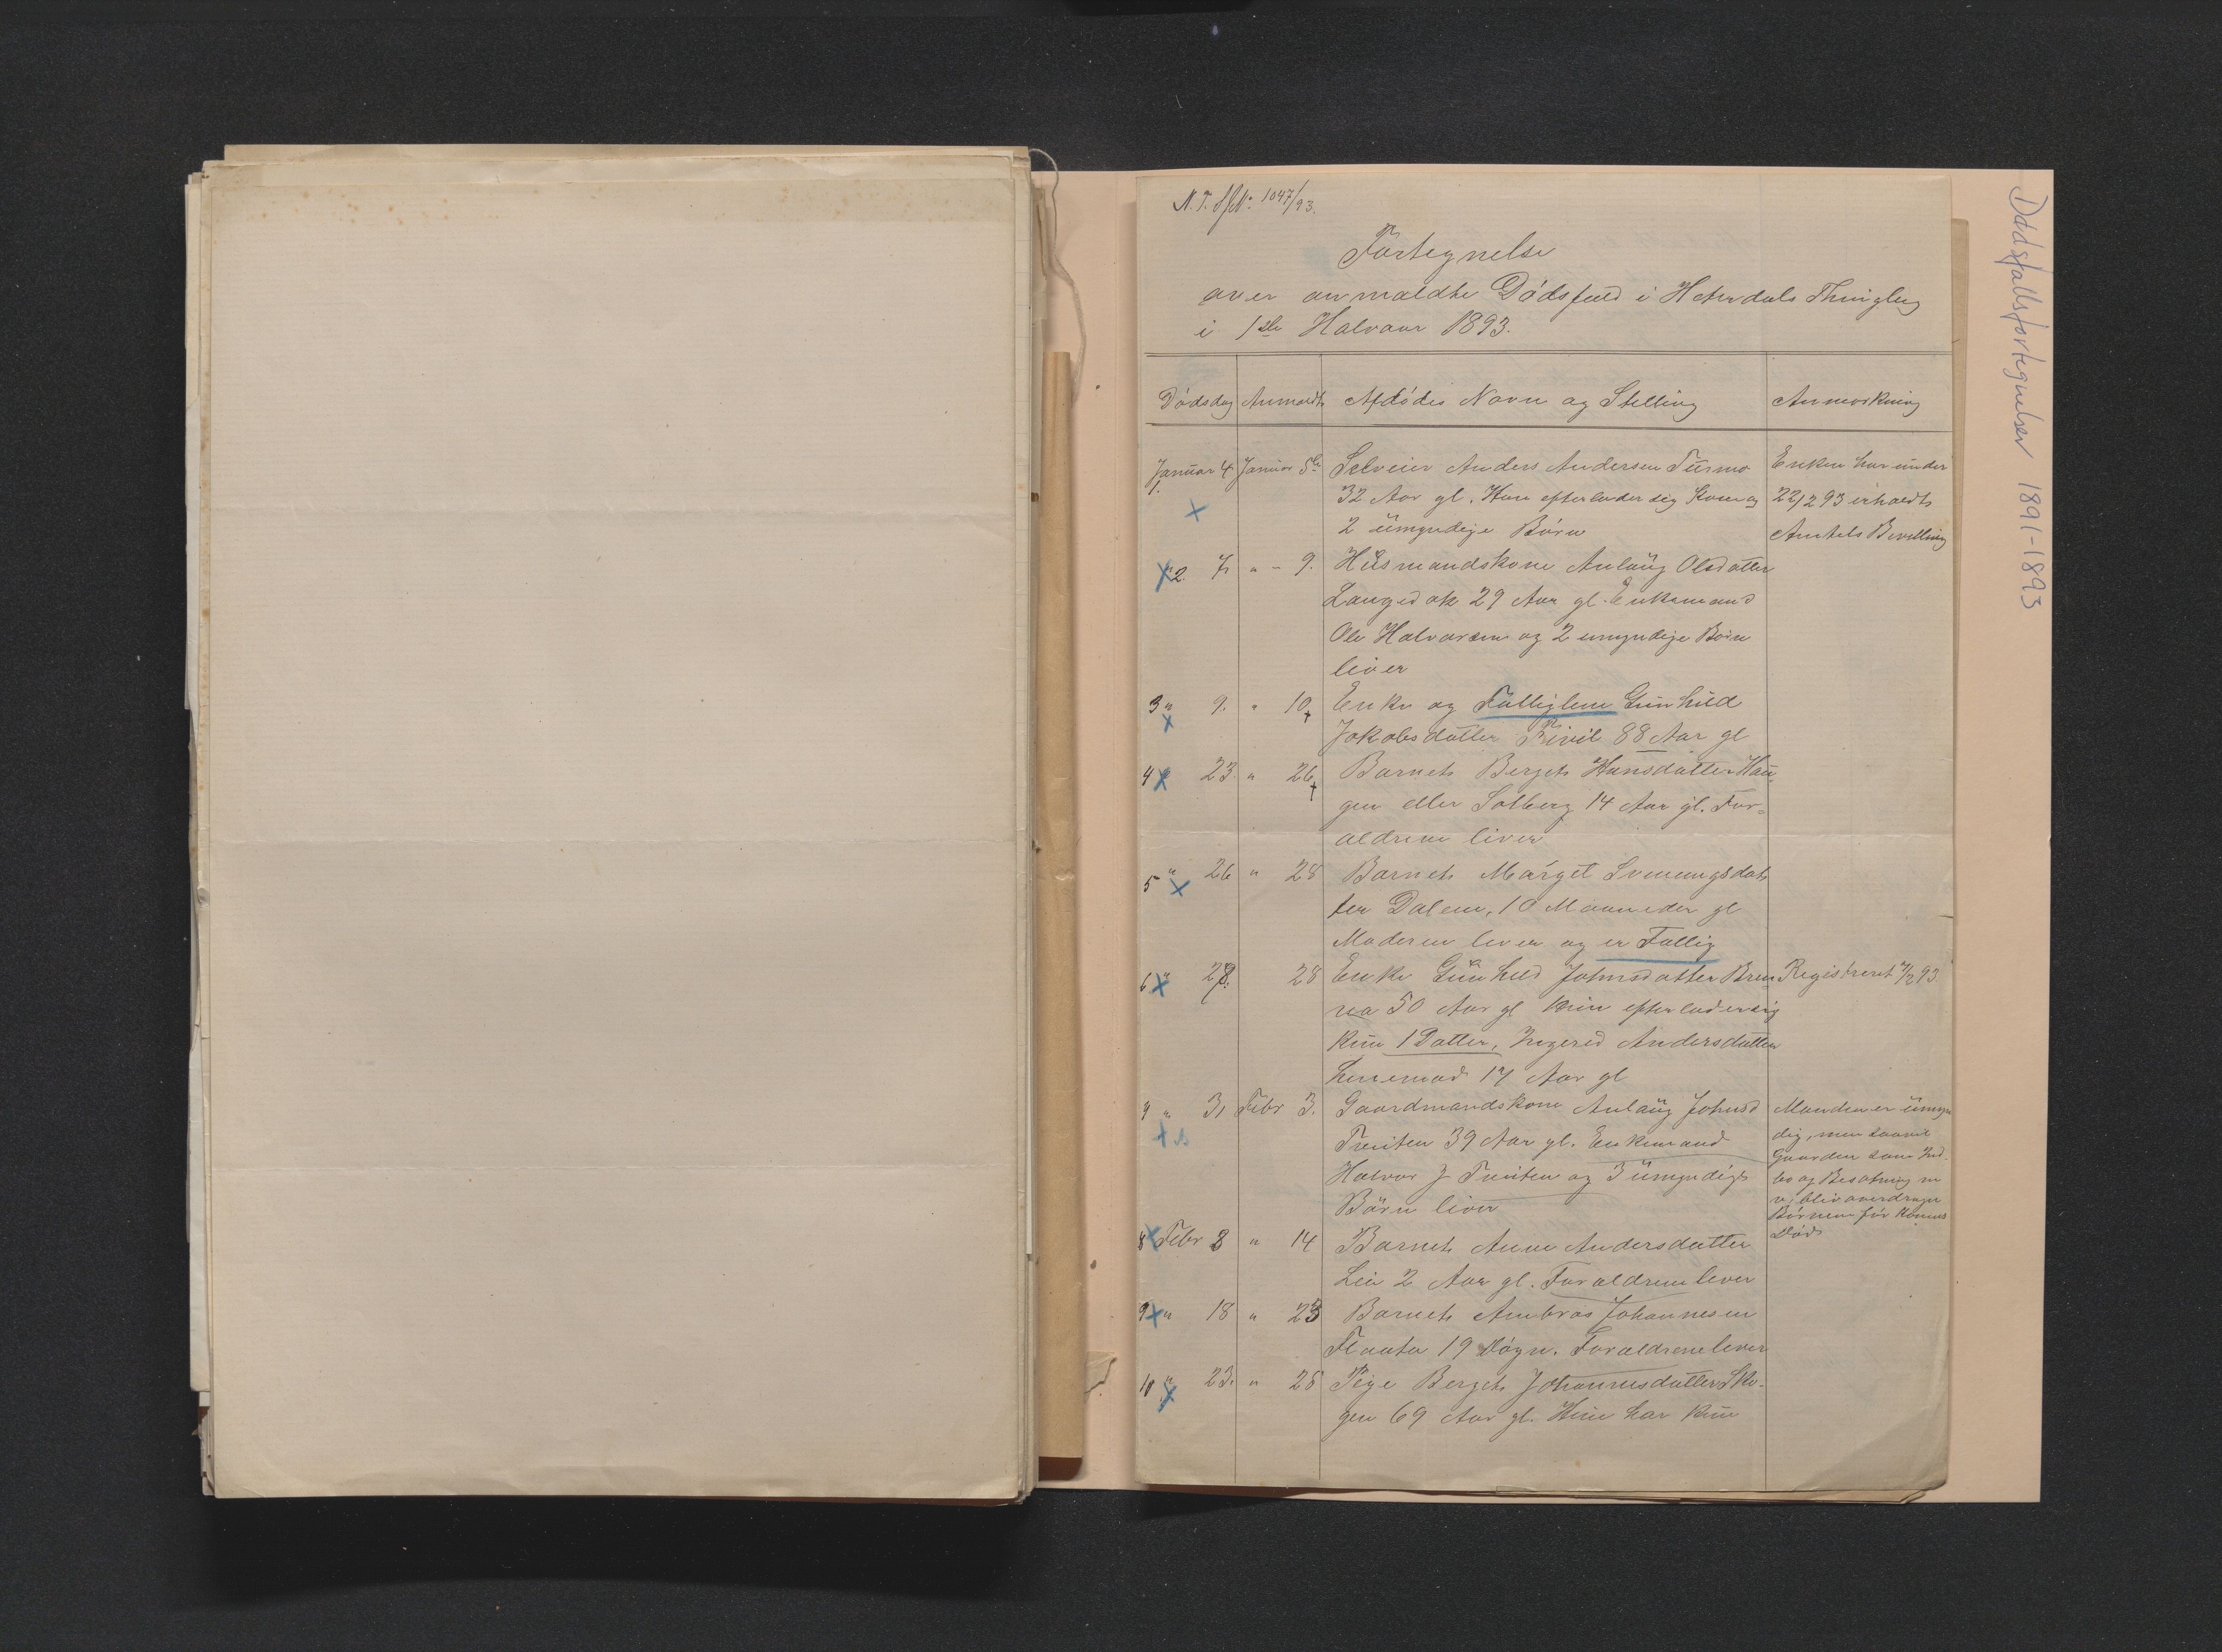 N. T. 1047/93.
Fortegnelse
over anmeldte Dødsfald i Heterdals Thinglag
i 1ste Halvaar 1893.
Dødsdag Anmeldt Afdødes Navn og Stilling Anmerkning
Januar 4 Januar 5te Selveier Anders Andersen Turmo Enken har under
1. 32 Aar gl. Han efterlader sig Kone og 22/2 93 erholdt
2 umyndige Børn Amtets Bevilling
2. 7. " " 9. Husmandskone Anlaug Olsdatter
Langedok 29 Aar gl. Enkemand
Ole Halvorsen og 2 umyndige Børn
lever
3 " 9. " 10 Enke og Fattiglem Gunhild
Jakobsdatter 88 Aar gl
4 " 23 " 26 Barnet Berget Hansdatter Hau-
gen eller Solberg 14 Aar gl. For-
ældrene lever
5 " 26 " 28 Barnet Margit Svenungsdat-
ter Dalene, 10 Maaneder gl
Moderen lever og er Fattig
6 " 27. 28 Enke Gunhild Johnsdatter Bren- Registreret 7/2 93.
na 50 Aar gl Hun efterlader sig
kun 1 Datter, Ingerid Andersdatter
henemod 17 Aar gl
7 " 31 Febr 3. Gaardmandskone Anlaug Johnsd Manden er umyn
Tveiten 39 Aar gl. Enkemand dig, men saavel
Gaarden som Ind-
Halvor J Tveiten og 3 umyndige bo og Besætning m
v. blev overdragen
Børn lever Børnene før Konens
Død
8 Febr 8 " 14 Barnet Anne Andersdatter
Lia 2 Aar gl. Forældrene lever
9 " 18 " 23 Barnet Ambros Johannesen
Flaata 19 Døgn. Forældrene lever
10 " 23. " 28 Pige Berget Johannesdatter Sko-
gen 69 Aar gl. Hun har kun
Dødsfallsfortegnelser 1891-1893